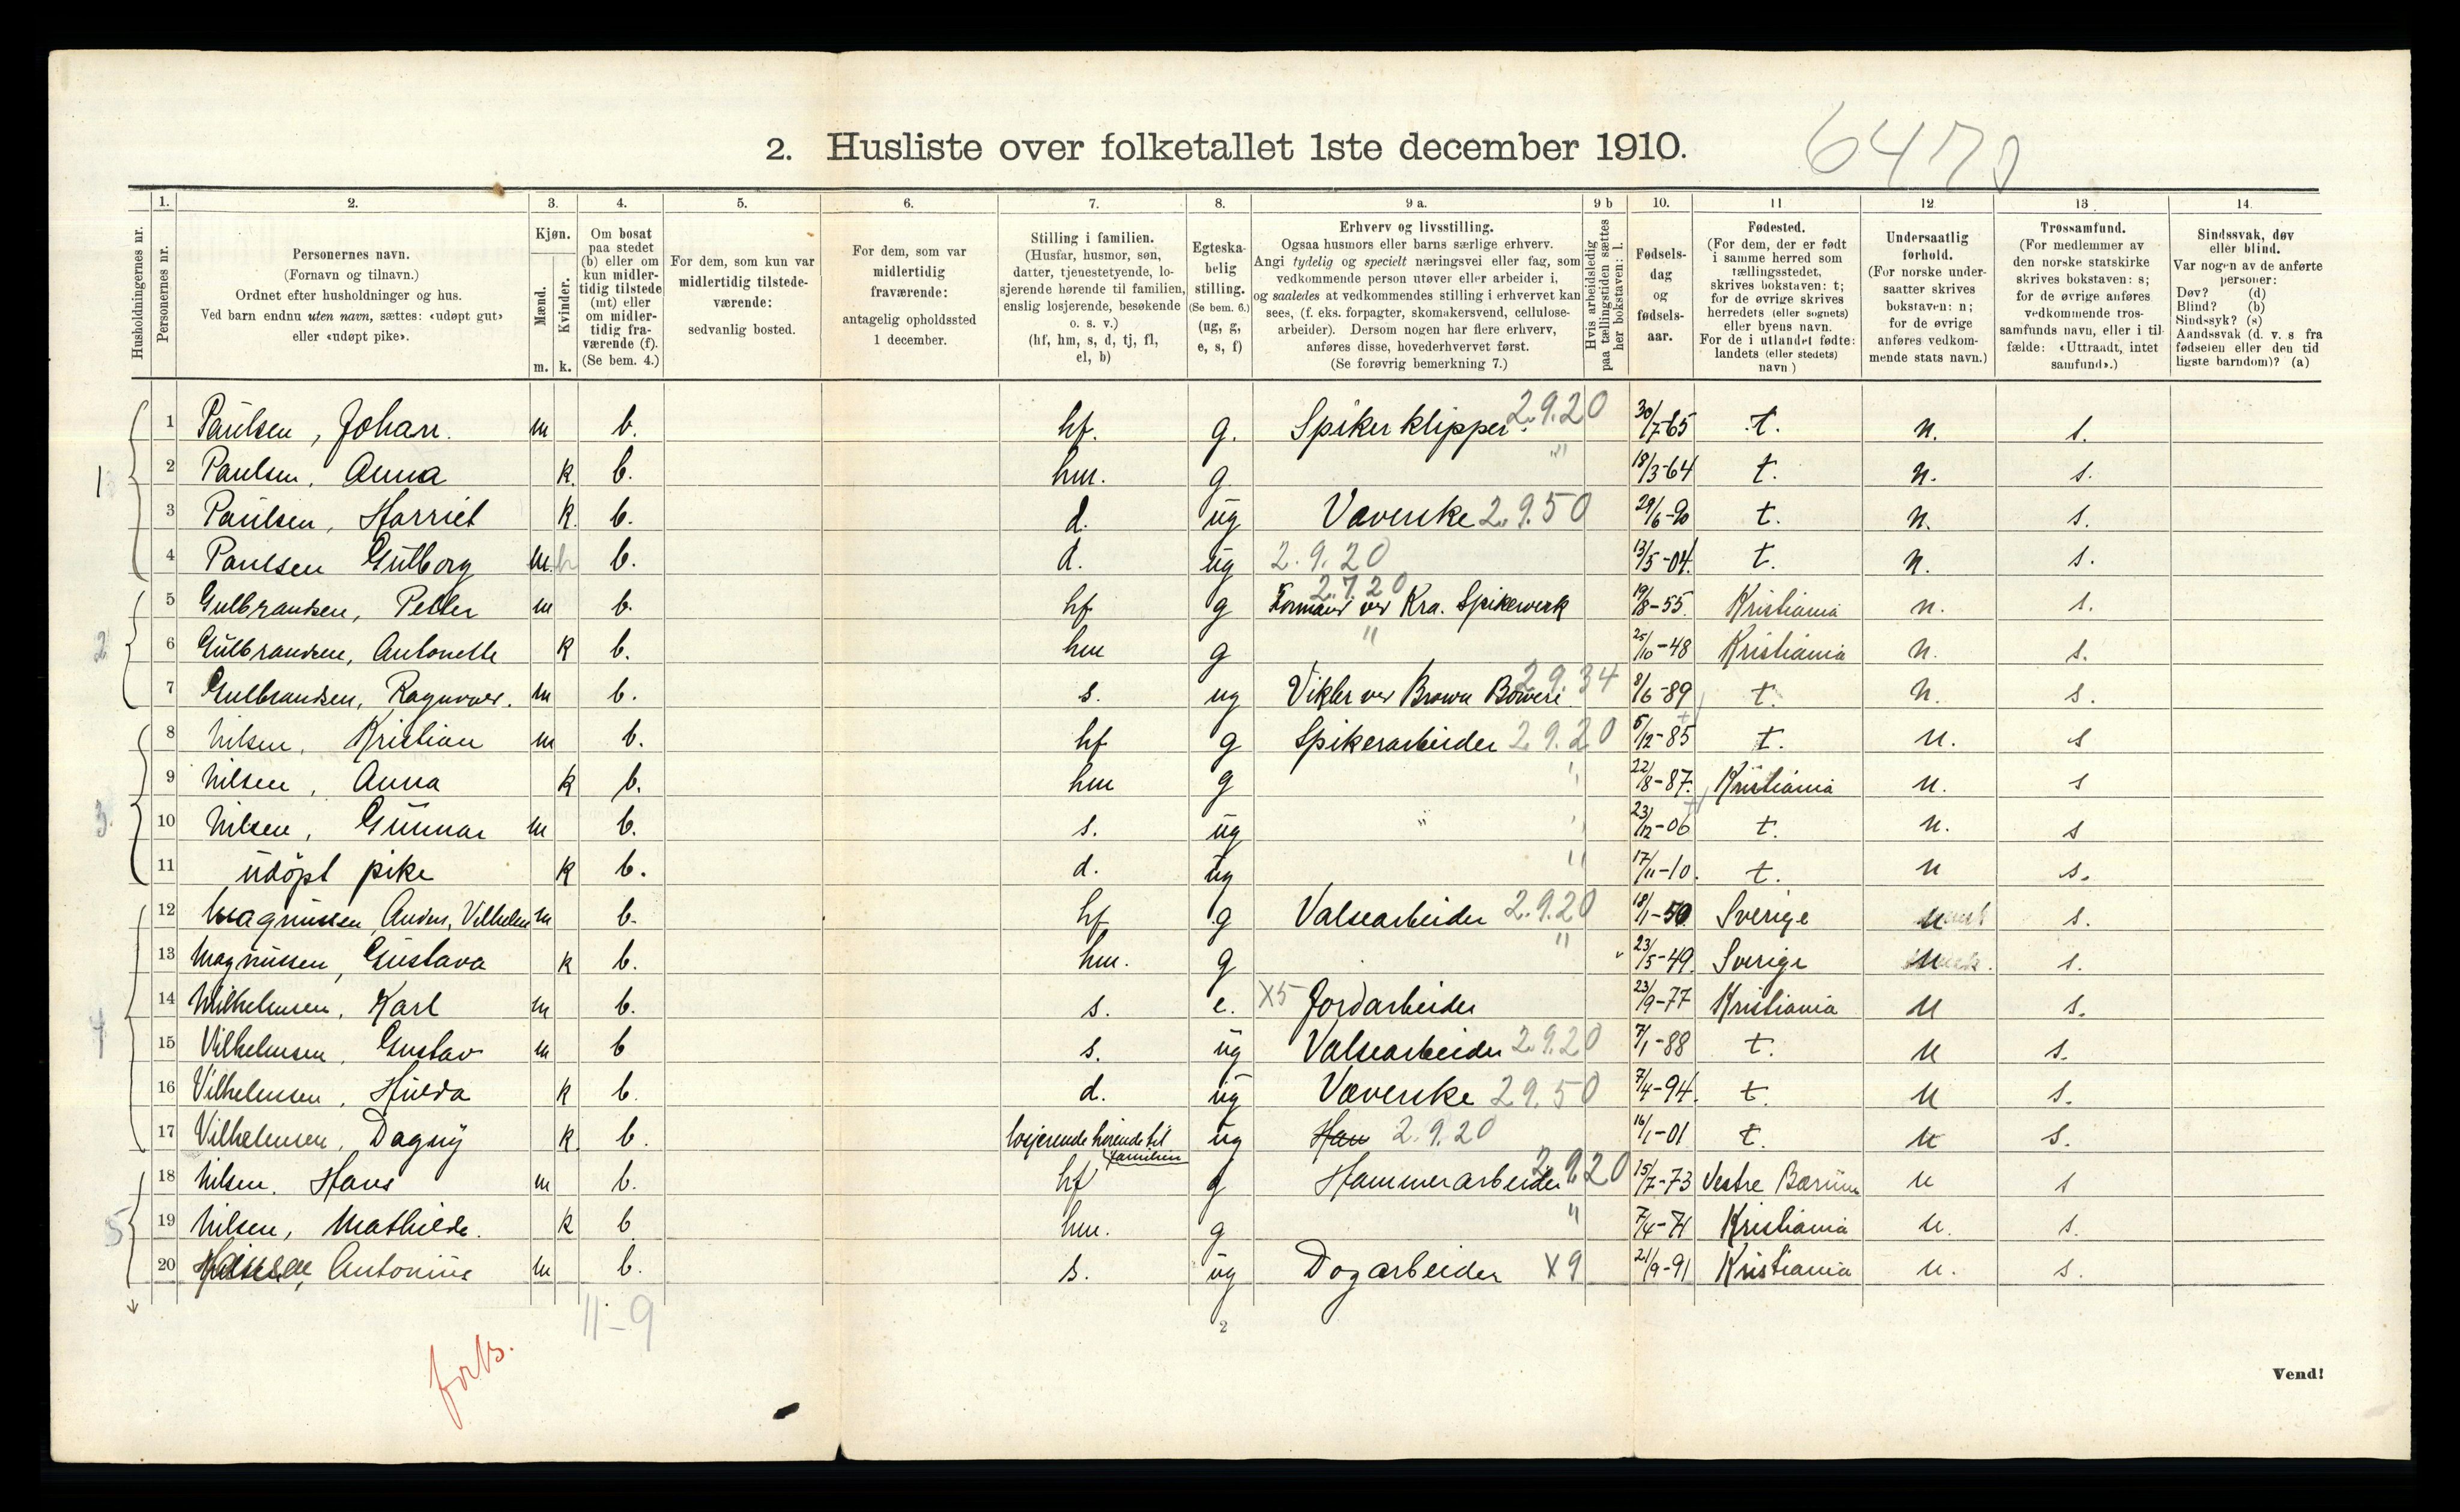 2. Husliste over folketallet 1ste december 1910.
6470
Husholdningernes nr.
1. Personernes nr.
2. Personernes navn. (Fornavn og tilnavn.) Ordnet efter husholdninger og hus. Ved barn endnu uten navn, sættes: «udøpt gut» eller «udøpt pike».
3. Kjøn. Mænd. m. Kvinder. k.
4. Om bosat paa stedet (b) eller om kun midlertidig tilstede (mt) eller om midlertidig fraværende (f). (Se bem. 4.)
5. For dem, som kun var midlertidig tilstedeværende: sedvanlig bosted.
6. For dem, som var midlertidig fraværende: antagelig opholdssted 1 december.
7. Stilling i familien. (Husfar, husmor, søn, datter, tjenestetyende, losjerende hørende til familien, enslig losjerende, besøkende o. s. v.) (hf, hm, s, d, tj, fl, el, b)
8. Egteskabelig stilling. (Se bem. 6.) (ug, g, e, s, f)
9 a. Erhverv og livsstilling. Ogsaa husmors eller barns særlige erhverv. Angi tydelig og specielt næringsvei eller fag, som vedkommende person utøver eller arbeider i, og saaledes at vedkommendes stilling i erhvervet kan sees, (f. eks. forpagter, skomakersvend, cellulosearbeider). Dersom nogen har flere erhverv, anføres disse, hovederhvervet først. (Se forøvrig bemerkning 7.)
9 b Hvis arbeidsledig paa tællingstiden sættes her bokstaven: l.
10. Fødselsdag og fødselsaar.
11 Fødested. (For dem, der er født i samme herred som tællingsstedet, skrives bokstaven: t; for de øvrige skrives herredets (eller sognets) eller byens navn. For de i utlandet fødte: landets (eller stedets) navn)
12 Undersaatlig forhold. (For norske undersaatter skrives bokstaven: n; for de øvrige anføres vedkommende stats navn.)
13 Trossamfund. (For medlemmer av den norske statskirke skrives bokstaven: s; for de øvrige anføres vedkommende trossamfunds navn, eller i tilfælde: «Uttraadt, intet samfund».)
14 Sindssvak, døv eller blind. Var nogen av de anførte personer: Døv? (d) Blind? (b) Sindssyk? (s) Aandssvak (d. v. s fra fødselen eller den tidligste barndom)? (a)
1 1 Paulsen, Johan. m b. hf. g. Spikerklipper. 2.9.20 30/7-65 t. n. s.
2 Paulsen, Anna k. b. hm. g " 18/3-64 t. n. s.
3 Paulsen, Harriet k. b. d. ug Væverske 2.9.50 29/6-90 t. n. s.
4 Paulsen Gulborg m. k b. d. ug 2.9.20 13/5-04. t. n. s.
2 5 Gulbrandsen, Petter m b. hf g 2.7.20 Formand ver Kra. Spikerverk 19/8-55. Kristiania n. s.
6 Gulbrandsen, Antonette k b. hm g " 25/10-48 Kristiania n. s.
7 Gulbrandsen, Ragnvald. m b. s. ug Vikler ved Brown Boweri 2.9.34 8/6-89 t. n. s.
3. 8 Nilsen, Kristian m b. hf g Spikerarbeider 2.9.20 6/12-85 t. n. s
9 Nilsen, Anna k b. hm g " 22/8-87. Kristiania n. s
10 Nilsen, Gunnar m b. s. ug " " 23/12-06 t. n. s
11 udöpt pike k b. d. ug " 17/11-10. t. n s.
4 12 Magnussen, Anders, Vilhelm m b. hf g Valsearbeider 2.9.20 18/1-50 Sverige n s.
13 Magnussen, Gustava k b. hm. g " 23/5-49. Sverige n s.
14 Wilhelmsen, Karl m b. s. e. X5 Jordarbeider 23/9-77 Kristiania n s.
15 Vilhelmsen, Gustav m b s. ug Valsearbeider 2.9.20 7/1-88 t. n s.
16 Vilhelmsen, Hilda k b. d. ug Væverske 2.9.50 7/4-94. t. n s.
17 Vilhelmsen, Dagny k. b. losjerende hørende til familien ug Han 2.9.20 16/1-01 t. n s.
5 18 Nilsen. Hans m b. hf g Hammerarbeider 2.9.20 15/7-73 Vestre Bærum n s
19 Nilsen, Mathilde. k b hm. g " 7/4-71 Kristiania n. s.
20 Antonius m b. s. ug Dagarbeider X9 21/9-91 Kristiania n. s.
11-9
2
forts.
Vend!